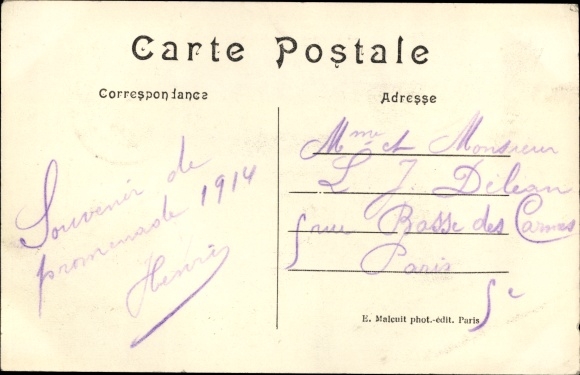 Carte Postale
Correspondance
Adresse
Souvenir de
promenade 1914
Henri
Mme et Monsieur
L J. Délean
5 rue Basse des Carmes
Paris
5e
E. Malcuit phot.-édit. Paris